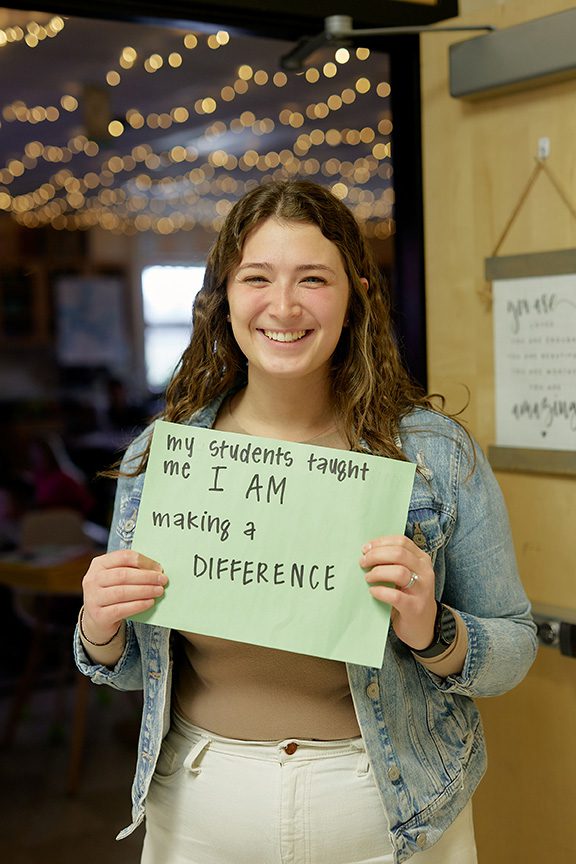 my students taught
me I AM
making a
DIFFERENCE
you are
YOU ARE
amazing